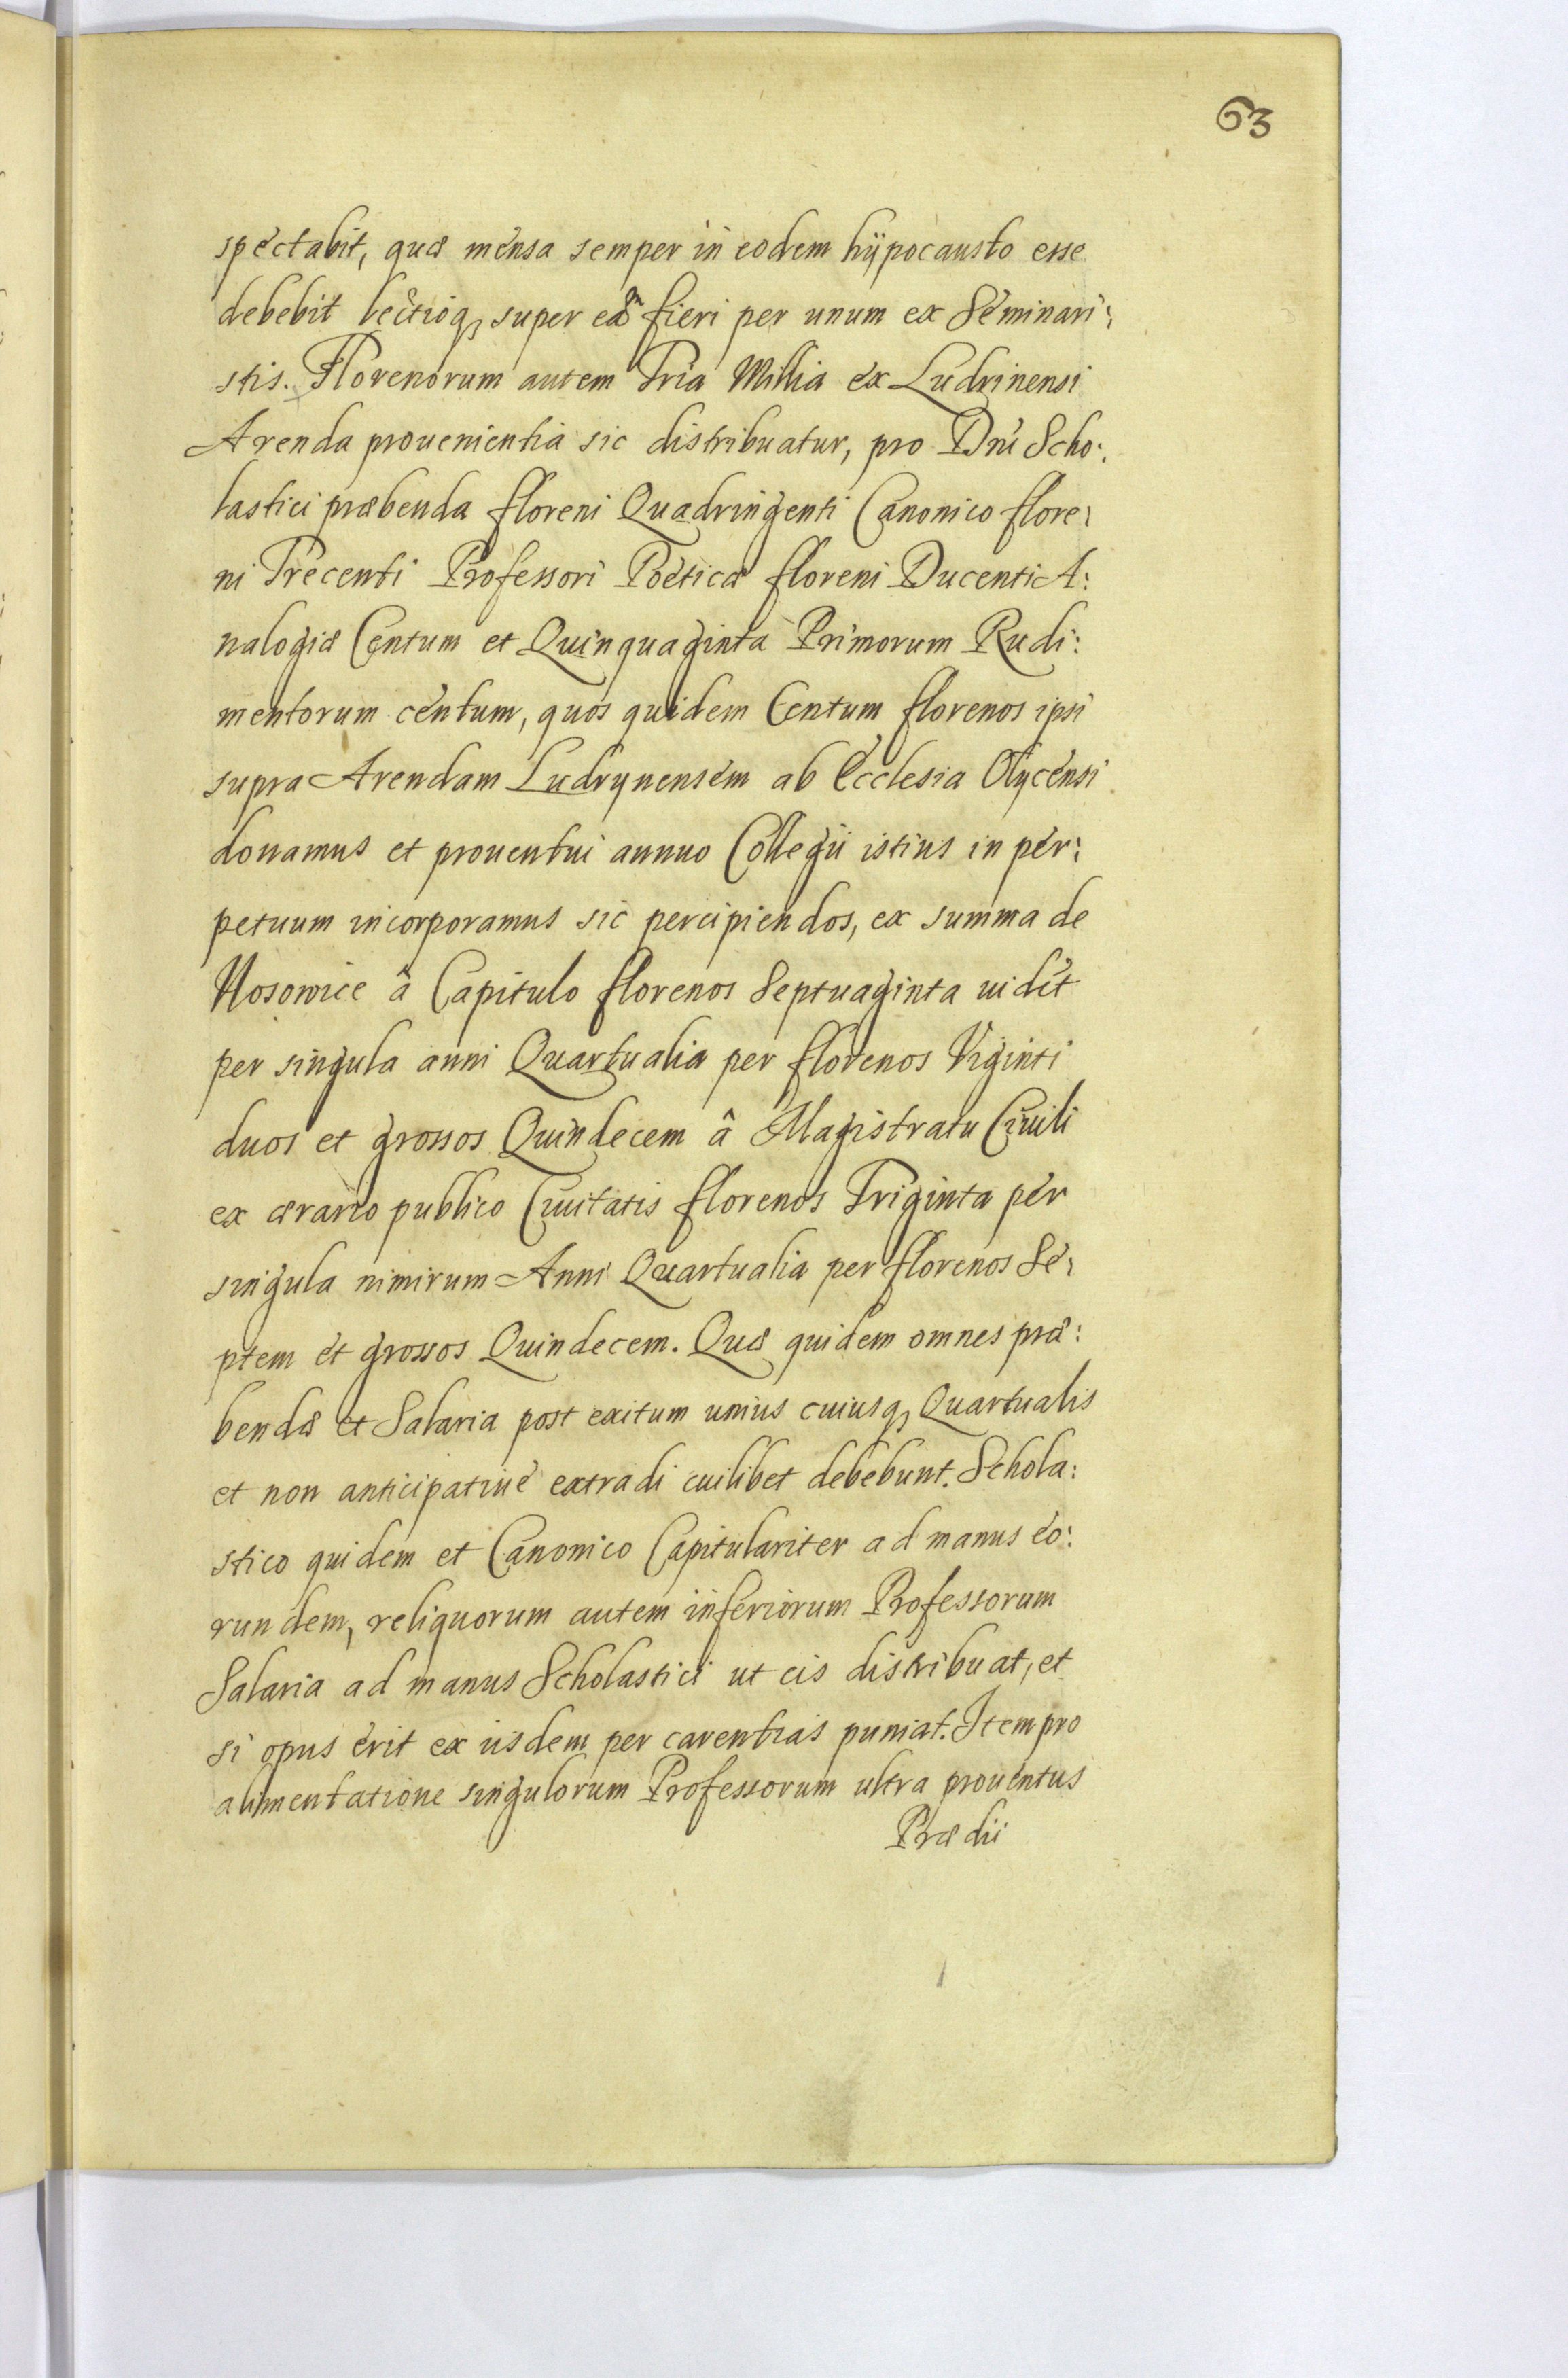 63
spectabit, quæ mensa semper in eodem hÿpocausto esse
debebit lectioq; super eâ fieri per unum ex Seminari:
stis. Florenorum autem Tria Millia ex Ludrinensi
Arenda prouenientia sic distribuatur, pro Dni Scho:
lastici præbenda floreni Quadringenti Canonico flore:
ni Trecenti Professori Poeticæ floreni Ducenti A:
nalogiæ Centum et Quinquaginta Primorum Rudi:
mentorum centum, quos quidem Centum florenos ipsi
supra Arendam Ludrynensem ab Ecclesia Olycensi
donamus et prouentui annuo Collegii istius in per:
petuum incorporamus sic percipiendos, ex summa de
Nosowice â Capitulo florenos Septuaginta uidet
per singula anni Quartualia per florenos Viginti
duos et grossos Quindecem â Magistratu Ciuili
ex ærario publico Ciuitatis florenos Triginta per
singula nimirum Anni Quartualia per florenos Se:
ptem et grossos Quindecem. Quæ quidem omnes præ:
bendæ et Salaria post exitum unius cuiusq; Quartualis
et non anticipatiue extradi cuilibet debebunt. Schola:
stico quidem et Canonico Capitulariter ad manus eo:
rundem, reliquorum autem inferiorum Professorum
Salaria ad manus Scholastici ut eis distribuat, et
si opus erit ex iisdem per carentias puniat. Item pro
alimentatione singulorum Professorum ultra prouentus
Prædii